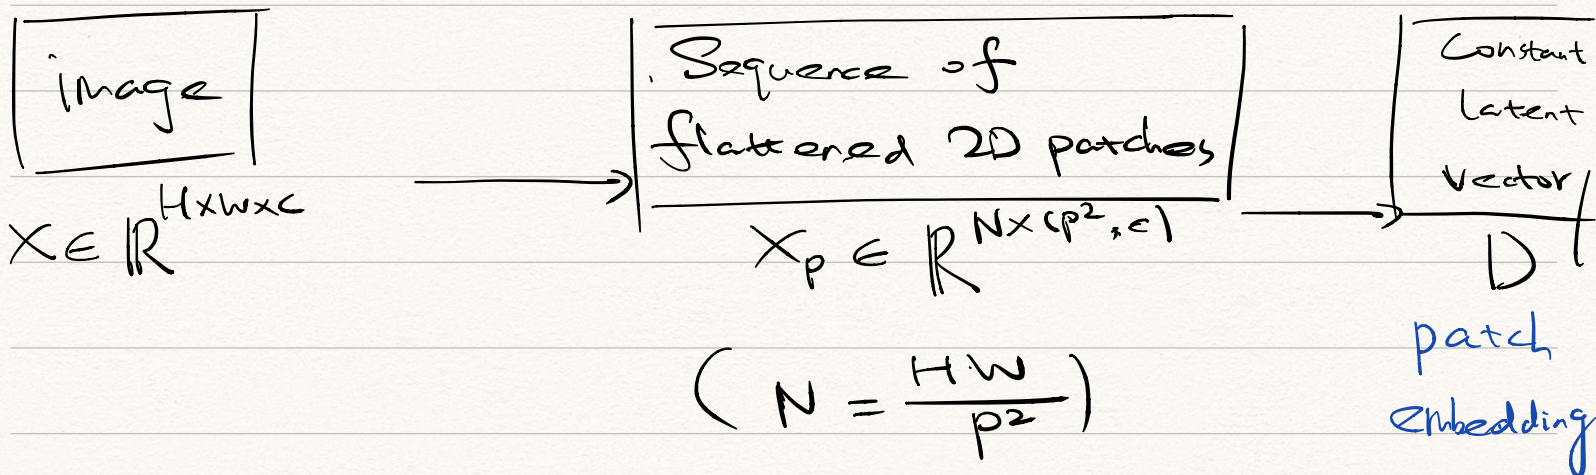 image
X ∈ ℝ^{H×W×C}
Sequence of
flattened 2D patches
X_p ∈ ℝ^{N×(P²·C)}
(N = HW / P²)
Constant
Latent
Vector
D
patch
embedding